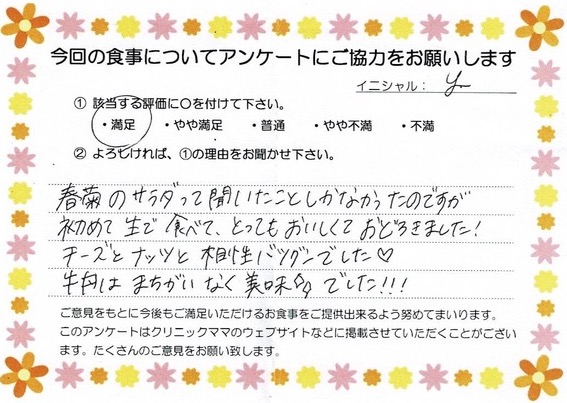 今回の食事についてアンケートにご協力をお願いします
イニシャル：
① 該当する評価に○を付けて下さい。
・満足 ・やや満足 ・普通 ・やや不満 ・不満
② よろしければ、①の理由をお聞かせ下さい。
春菊のサラダって聞いたことしかなかったのですが
初めて生で食べて、とってもおいしくておどろきました！
チーズとナッツと相性バツグンでした♡
牛肉はまちがいなく美味でした！！！
ご意見をもとに今後もご満足いただけるお食事をご提供出来るよう努めてまいります。
このアンケートはクリニックママのウェブサイトなどに掲載させていただくことがござい
ます。たくさんのご意見をお願い致します。